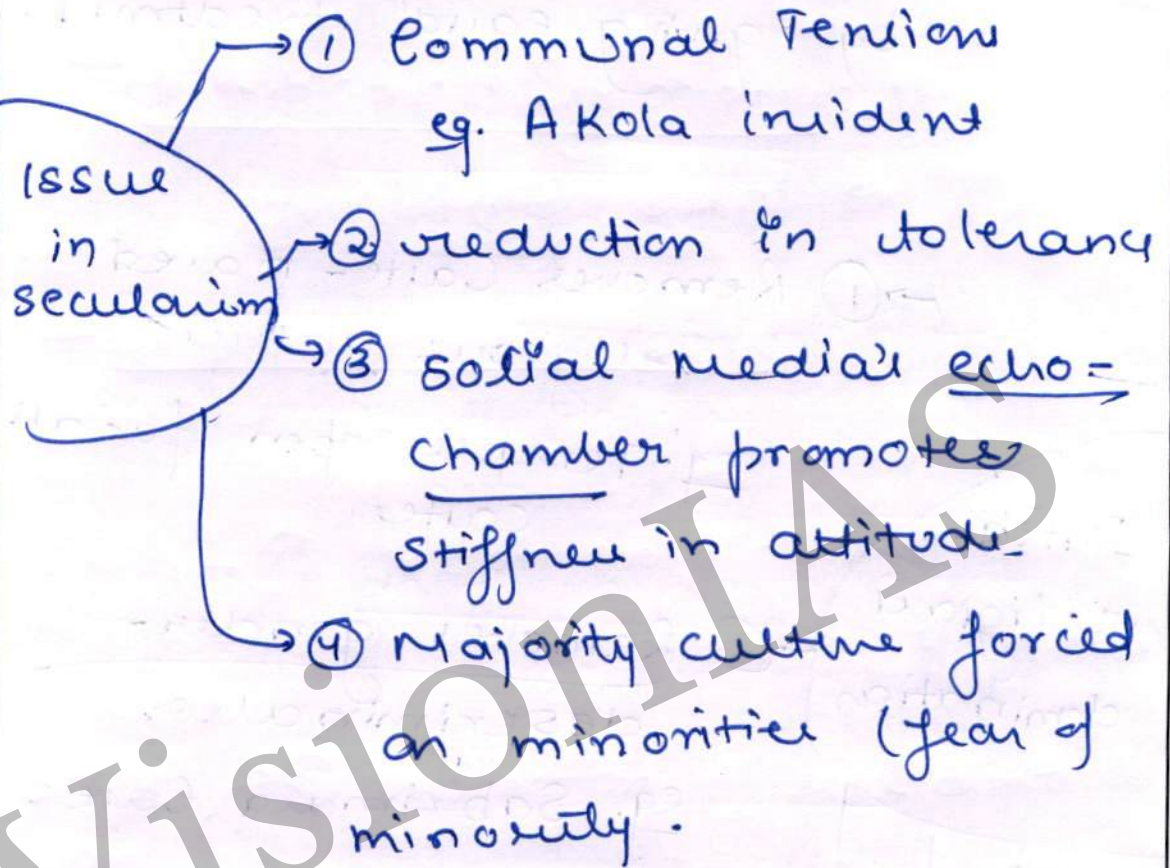 → ① Communal Tension
eg. Akola incident
Issue
in
secularism
→ ② reduction in tolerance
→ ③ Social media's echo-
chamber promotes
stiffness in attitude.
→ ④ Majority culture forced
on minorities (fear of
minority.
VisionIAS